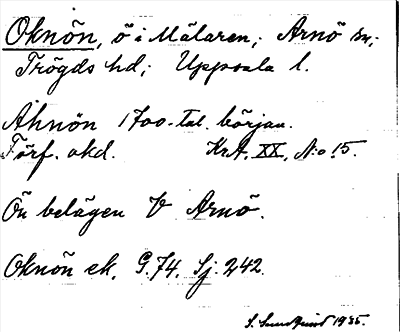 Oknön, ö i Mälaren; Arnö sn;
Trögds hd; Uppsala l.
Åknön 1700-tal. början.
Förf. okd. KrA. XX, N:o 15.
Ön belägen V Arnö.
Oknön ek. G.74. Sj. 242.
S. Sundquist 1935.